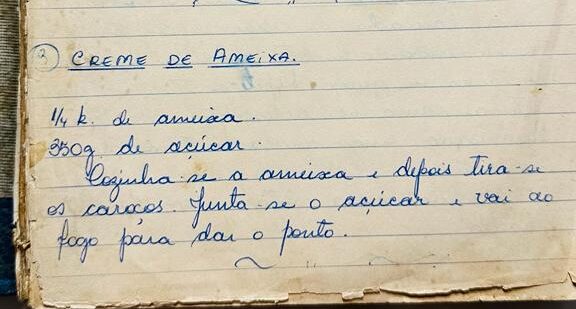 3 CREME DE AMEIXA.
1/4 k. de ameixa.
350g de açúcar.
Cozinha-se a ameixa e depois tira-se
os caroços. Junta-se o açúcar e vai ao
fogo para dar o ponto.